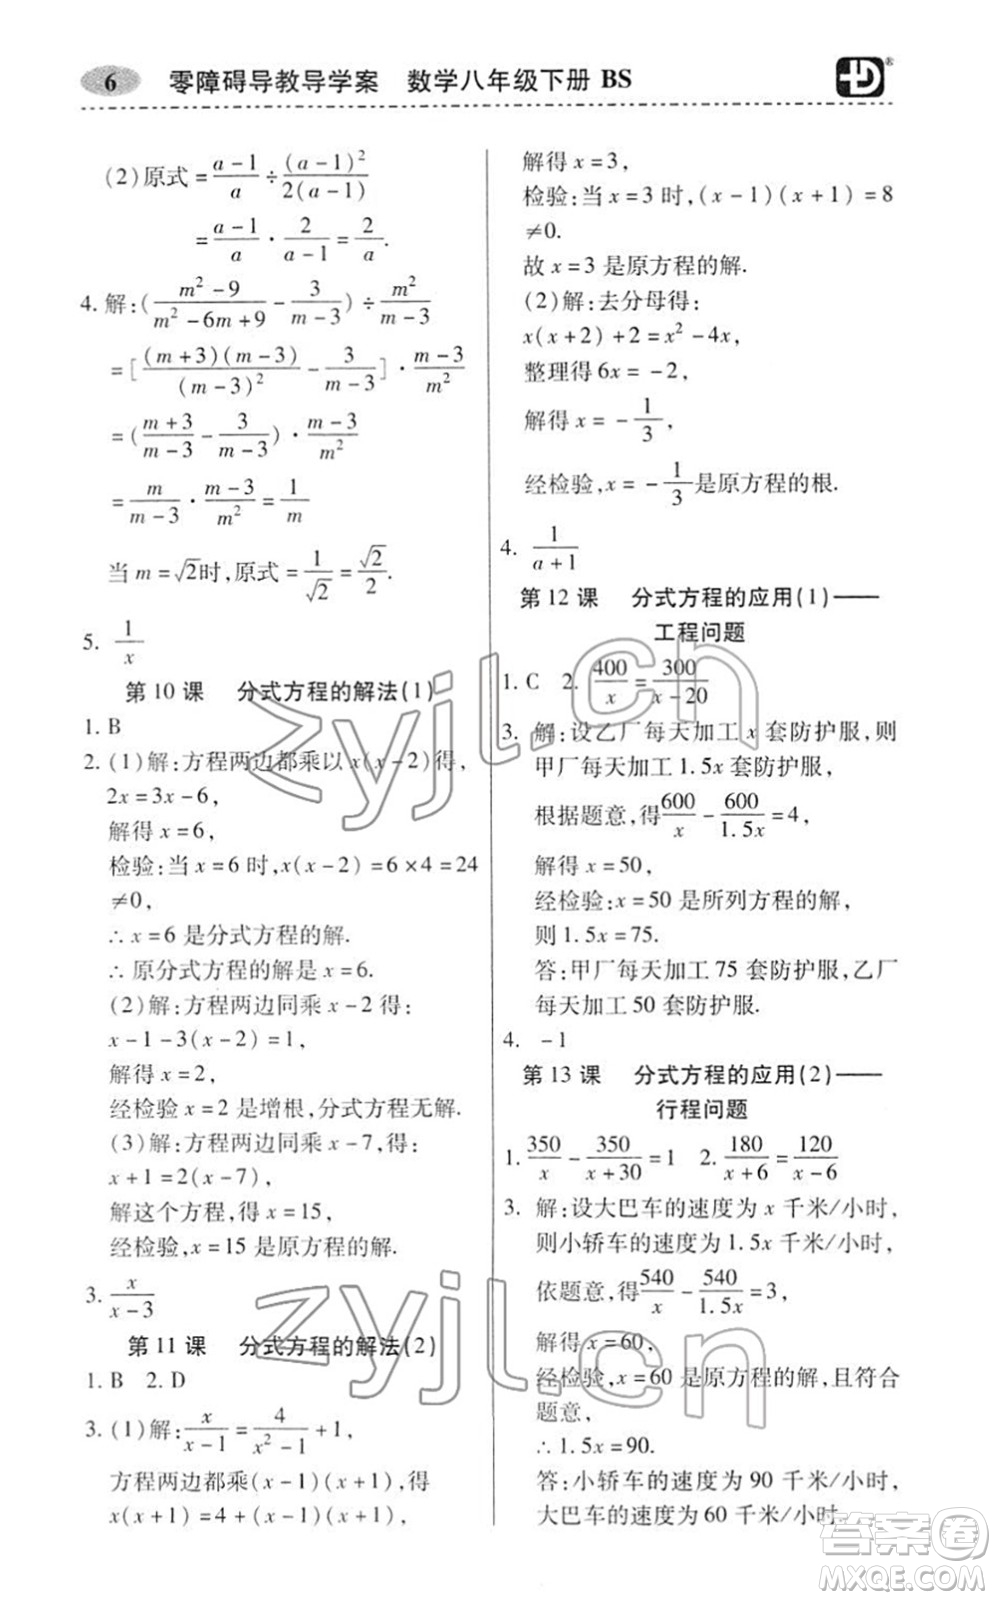 6 零障碍导教导学案 数学八年级下册 BS
(2)原式=\frac{a-1}{a}÷\frac{(a-1)^2}{2(a-1)}
=\frac{a-1}{a}·\frac{2}{a-1}=\frac{2}{a}.
4.解:(\frac{m^2-9}{m^2-6m+9}-\frac{3}{m-3})÷\frac{m^2}{m-3}
=[\frac{(m+3)(m-3)}{(m-3)^2}-\frac{3}{m-3}]·\frac{m-3}{m^2}
=(\frac{m+3}{m-3}-\frac{3}{m-3})·\frac{m-3}{m^2}
=\frac{m}{m-3}·\frac{m-3}{m^2}=\frac{1}{m}
当 m=√2时,原式=\frac{1}{√2}=\frac{√2}{2}.
5. \frac{1}{x}
第 10 课 分式方程的解法(1)
1. B
2. (1)解:方程两边都乘以 x(x-2)得,
2x=3x-6,
解得 x=6,
检验:当 x=6 时,x(x-2)=6×4=24
≠0,
∴ x=6 是分式方程的解.
∴ 原分式方程的解是 x=6.
(2)解:方程两边同乘 x-2 得:
x-1-3(x-2)=1,
解得 x=2,
经检验 x=2 是增根,分式方程无解.
(3)解:方程两边同乘 x-7,得:
x+1=2(x-7),
解这个方程,得 x=15,
经检验,x=15 是原方程的解.
3. \frac{x}{x-3}
第 11 课 分式方程的解法(2)
1. B 2. D
3. (1)解:\frac{x}{x-1}=\frac{4}{x^2-1}+1,
方程两边都乘(x-1)(x+1),得
x(x+1)=4+(x-1)(x+1),
解得 x=3,
检验:当 x=3 时,(x-1)(x+1)=8
≠0.
故 x=3 是原方程的解.
(2)解:去分母得:
x(x+2)+2=x^2-4x,
整理得 6x=-2,
解得 x=-\frac{1}{3},
经检验,x=-\frac{1}{3}是原方程的根.
4. \frac{1}{a+1}
第 12 课 分式方程的应用(1)——
工程问题
1. C 2. \frac{400}{x}=\frac{300}{x-20}
3. 解:设乙厂每天加工 x 套防护服,则
甲厂每天加工 1.5x 套防护服,
根据题意,得\frac{600}{x}-\frac{600}{1.5x}=4,
解得 x=50,
经检验:x=50 是所列方程的解,
则 1.5x=75.
答:甲厂每天加工 75 套防护服,乙厂
每天加工 50 套防护服.
4. -1
第 13 课 分式方程的应用(2)——
行程问题
1.\frac{350}{x}-\frac{350}{x+30}=1 2.\frac{180}{x+6}=\frac{120}{x-6}
3. 解:设大巴车的速度为 x 千米/小时,
则小轿车的速度为 1.5x 千米/小时,
依题意,得\frac{540}{x}-\frac{540}{1.5x}=3,
解得 x=60,
经检验,x=60 是原方程的解且符合
题意,
∴ 1.5x=90.
答:小轿车的速度为 90 千米/小时,
大巴车的速度为 60 千米/小时.
zyjl.cn
zyjl.cn
答案圈
MXQE.COM